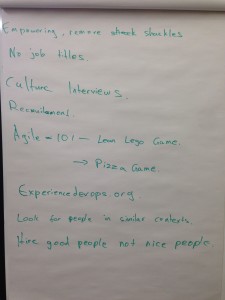 Empowering, remove
No job titles.
Culture Interviews.
Recruitement.
Agile - 101 — Lean Lego Game.
→ Pizza Game.
Experiencedevops.org.
Look for people in similar contexts.
Hire good people not nice people.